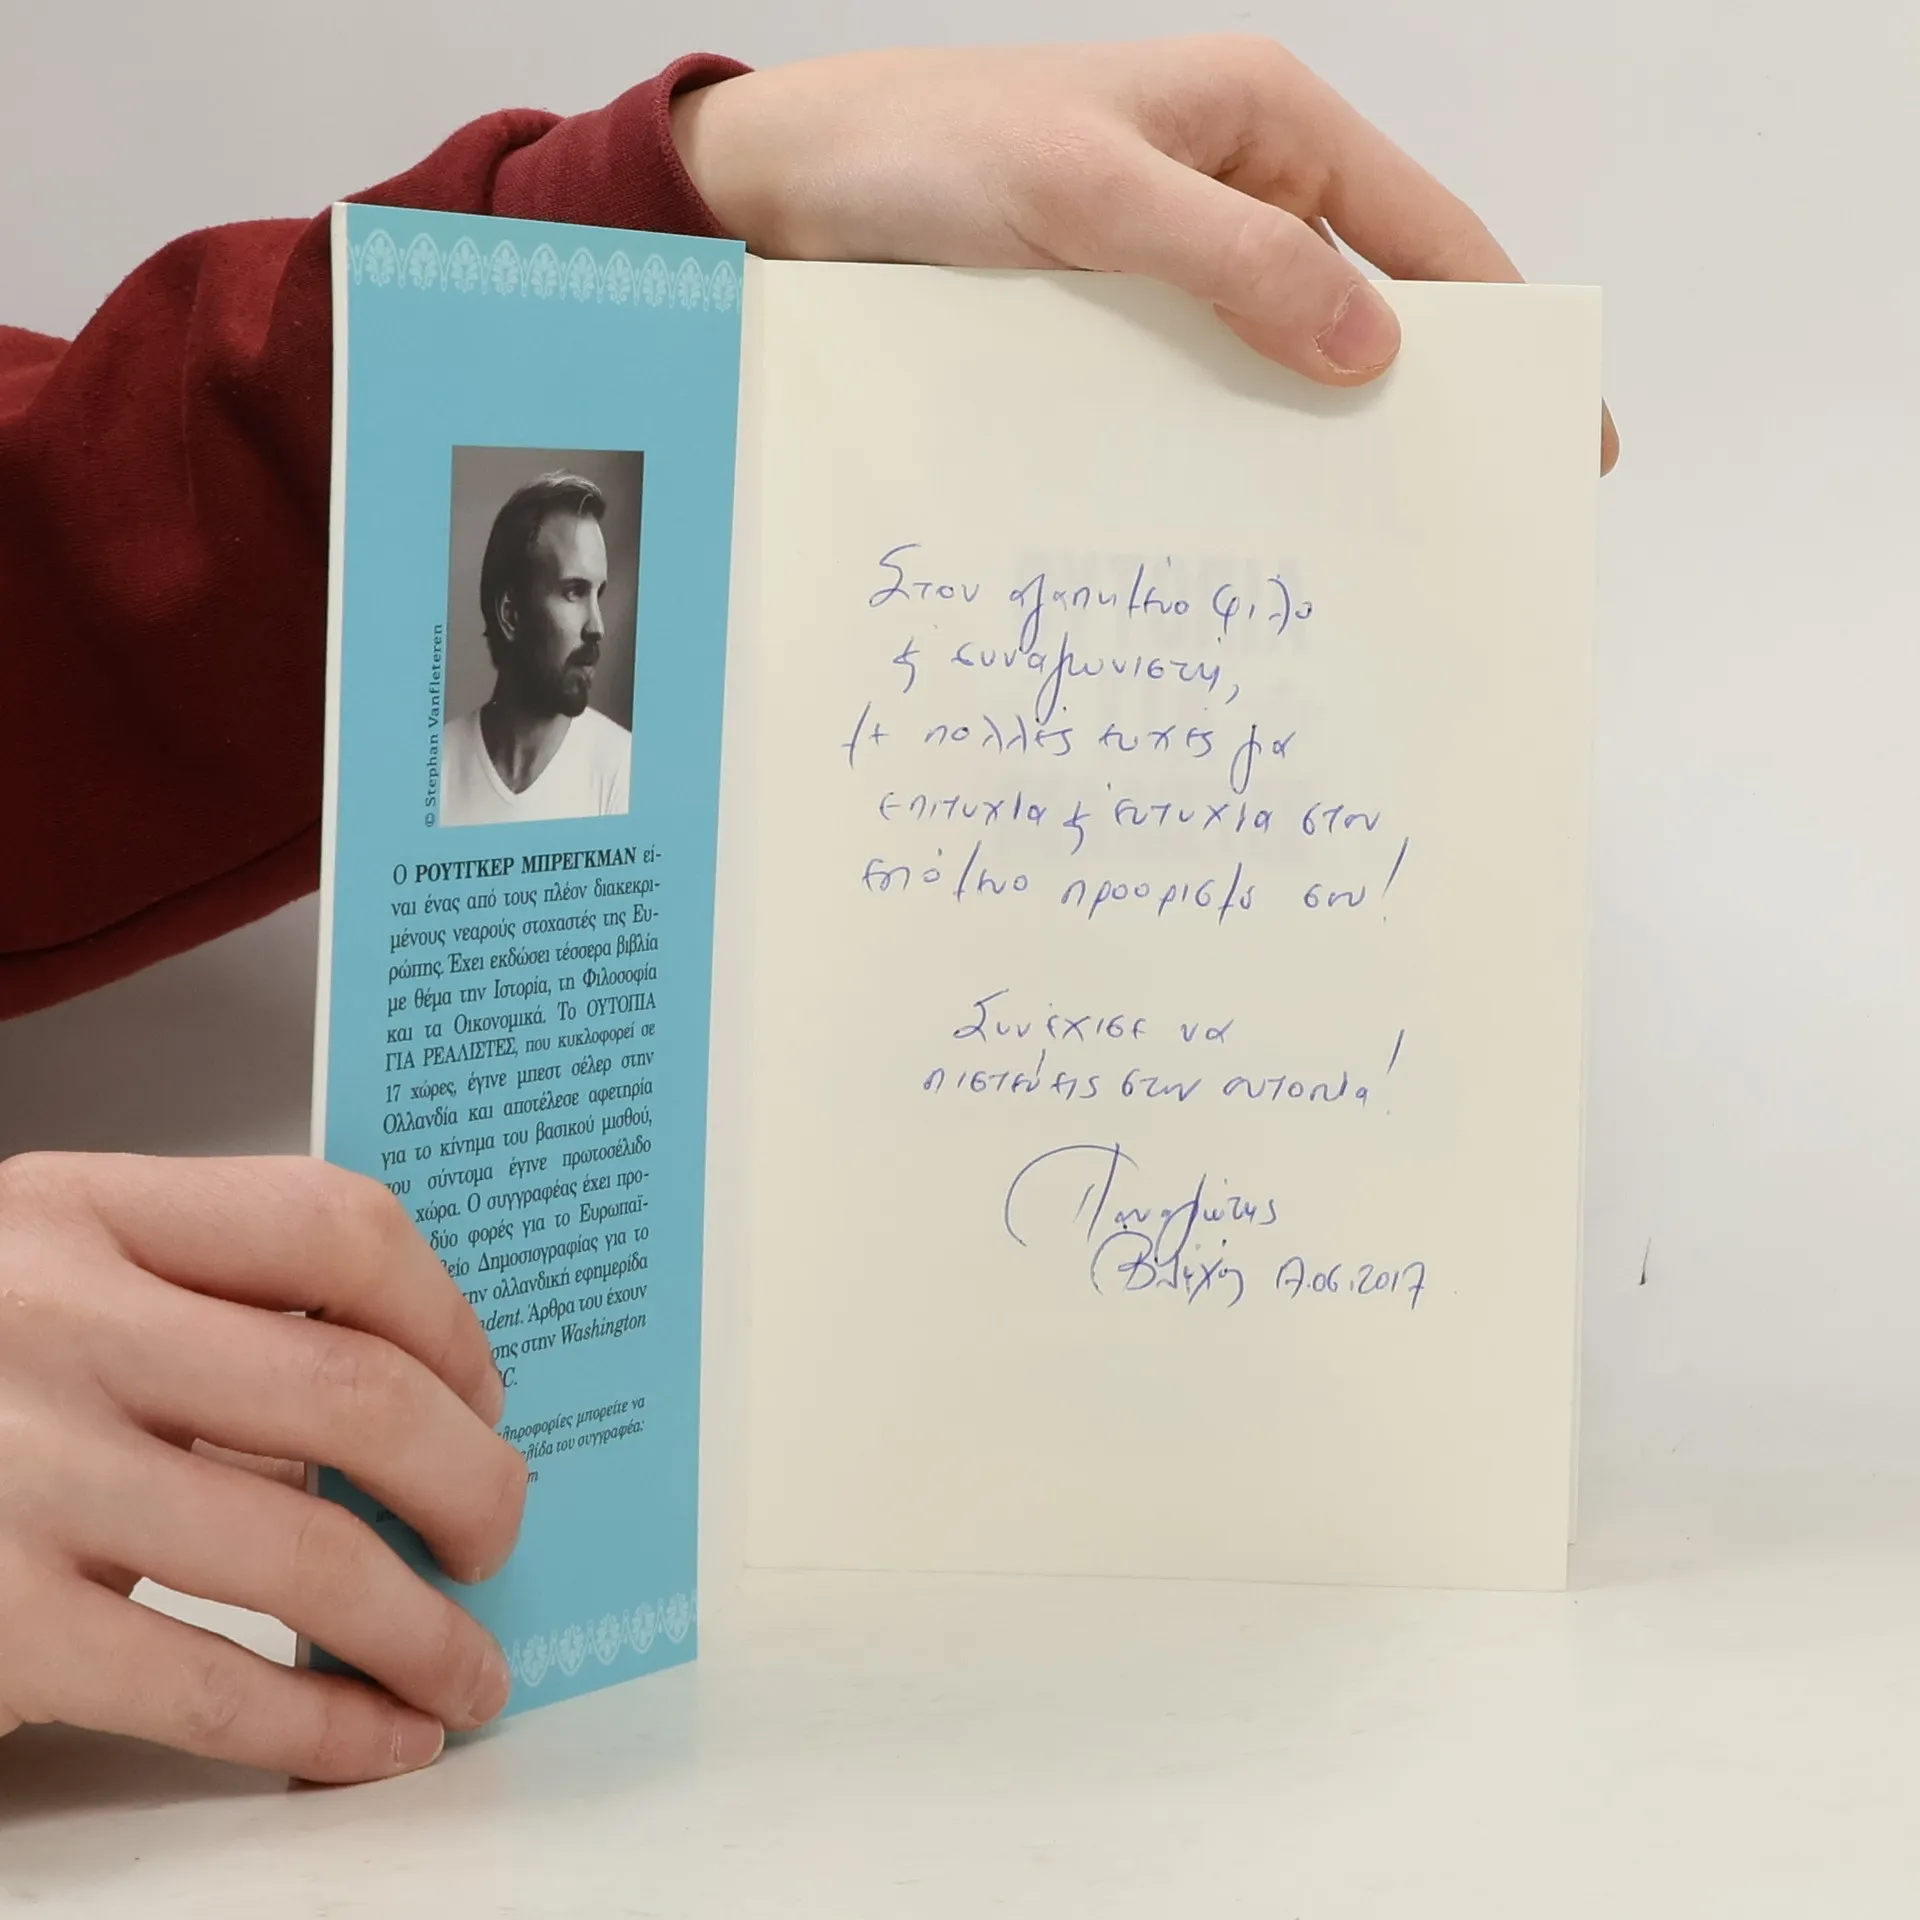 © Stephan Vanfleteren
Ο ΡΟΥΤΓΚΕΡ ΜΠΡΕΓΚΜΑΝ εί-
ναι ένας από τους πλέον διακεκρι-
μένους νεαρούς στοχαστές της Ευ-
ρώπης. Έχει εκδώσει τέσσερα βιβλία
με θέμα την Ιστορία, τη Φιλοσοφία
και τα Οικονομικά. Το ΟΥΤΟΠΙΑ
ΓΙΑ ΡΕΑΛΙΣΤΕΣ, που κυκλοφορεί σε
17 χώρες, έγινε μπεστ σέλερ στην
Ολλανδία και αποτέλεσε αφετηρία
για το κίνημα του βασικού μισθού,
που σύντομα έγινε πρωτοσέλιδο
χώρα. Ο συγγραφέας έχει προ-
δύο φορές για το Ευρωπαϊ-
Δημοσιογραφίας για το
ην ολλανδική εφημερίδα
ndent. Άρθρα του έχουν
σης στην Washington
C.
ληροφορίες μπορείτε να
ελίδα του συγγραφέα:
m
Στον αγαπημένο φίλο
& συναγωνιστή,
με πολλές ευχές για
επιτυχία & ευτυχία στον
επόμενο προορισμό σου!
Συνέχισε να
πιστεύεις στην ουτοπία!
Παναγιώτης
Βλάχος 17.06.2017